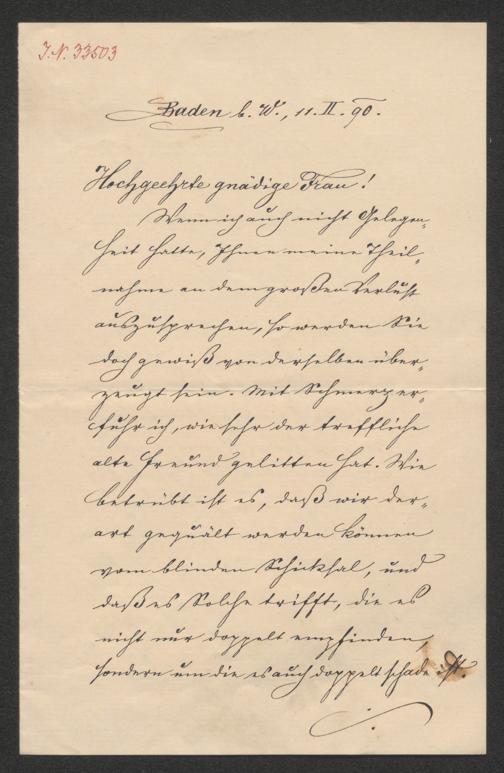 J.N. 33503
Baden b. W., 11. II. 90.
Hochgeehrte gnädige Frau!
Wenn ich auch nicht Gelegen-
heit hatte, Ihnen meine Theil-
nahme an dem großen Verlust
auszusprechen, so werden Sie
doch gewiß von derselben über-
zeugt sein. Mit Schmerz er-
fuhr ich, wie sehr der treffliche
alte Freund gelitten hat. Wie
betrübt ist es, daß wir der-
art gequält werden können
vom blinden Schicksal, und
daß es Solche trifft, die es
nicht nur doppelt empfinden,
sondern um die es auch doppelt schade ist.